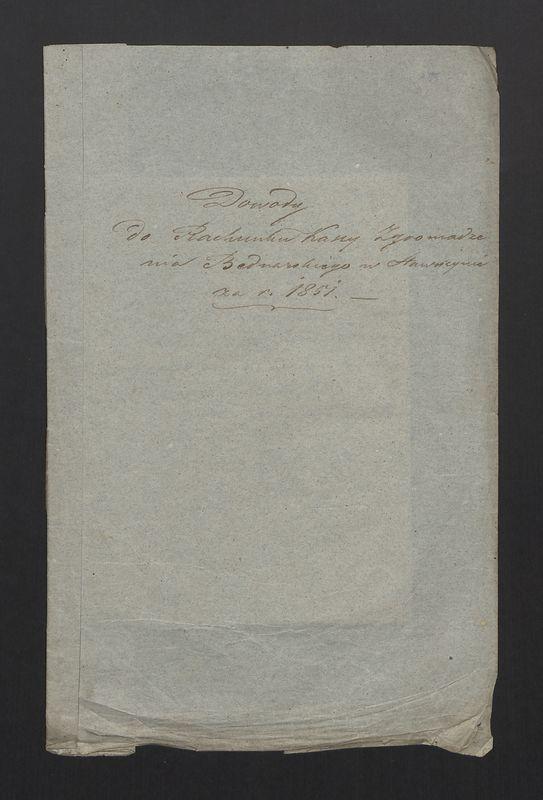 Dowody
do Rachunku Kassy Zgromadze
nia Bednarskiego w
za r. 1851.